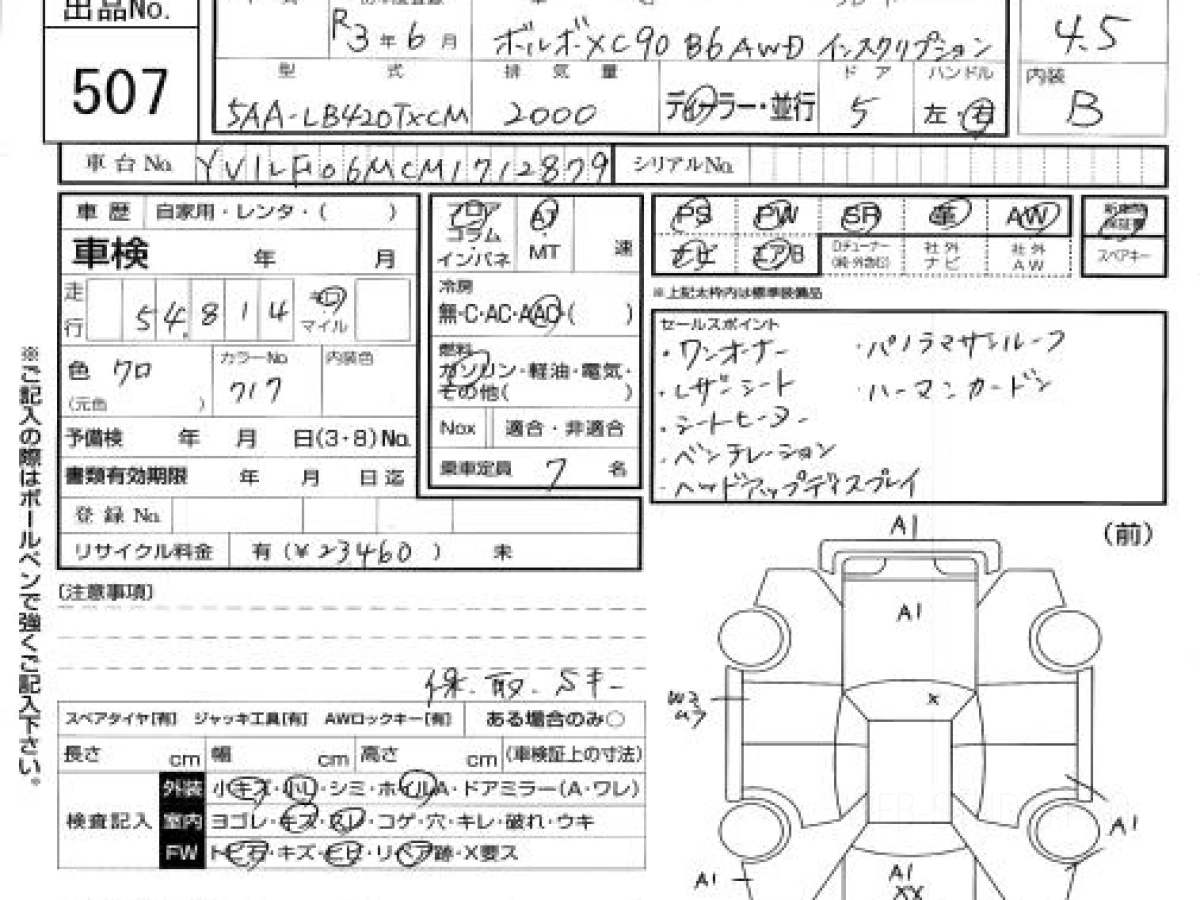 出品No. 507
R3年6月 ボルボXC90 B6 AWD インスクリプション 4.5
型式 排気量 ドア ハンドル 内装
5AA-LB420TXCM 2000 ディーラー・並行 5 左・右 B
車台No. YV1LF 06MCM1712879 シリアルNo.
車歴 自家用・レンタ・( )
車検 年 月
走行 54,814 キロ マイル
色 クロ カラーNo 717 内装色
(元色 )
予備検 年 月 日(3・8)No.
書類有効期限 年 月 日迄
登録No.
リサイクル料金 有(¥23460) 未
フロア コラム インパネ AT・MT 速
冷房
無・C・AC・AAC・( )
燃料
ガソリン・軽油・電気・
その他( )
Nox 適合・非適合
乗車定員 7 名
PS PW SR 革 AW 新車時保証書
ナビ エアB Dチューナー(純・外含む) 社外ナビ 社外AW スペアキー
※上記太枠内は標準装備品
セールスポイント
・ワンオーナー ・パノラマサンルーフ
・レザーシート ・ハーマンカードン
・シートヒーター
・ベンチレーション
・ヘッドアップディスプレイ
※ご記入の際はボールペンで強くご記入下さい。
[注意事項]
保.取.Sキー
スペアタイヤ[有] ジャッキ工具[有] AWロックキー[有] ある場合のみ○
長さ cm 幅 cm 高さ cm (車検証上の寸法)
検査記入
外装 小キズ・小凹・シミ・ホイルA・ドアミラー(A・ワレ)
室内 ヨゴレ・キズ・スレ・コゲ・穴・キレ・破れ・ウキ
FW トビ石・キズ・ヒビ・リペア跡・X要ス
(前)
A1
A1
X
W3
A1
A1
A1
XX